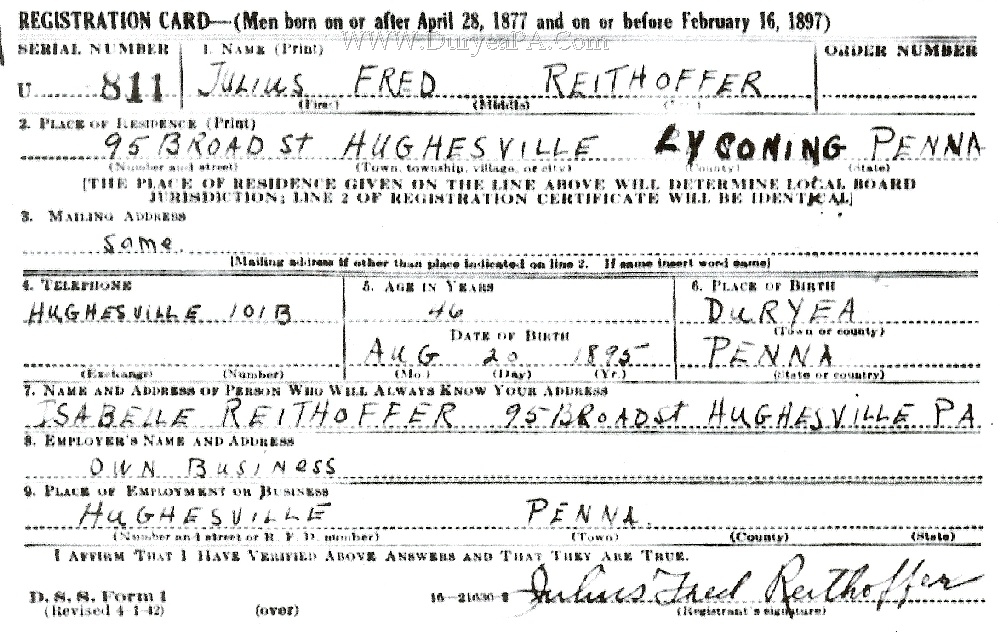 REGISTRATION CARD—(Men born on or after April 28, 1877 and on or before February 16, 1897)
www.DuryeaPA.Com
SERIAL NUMBER 1. NAME (Print) ORDER NUMBER
U 811 JULIUS FRED REITHOFFER
(First) (Middle)
2. PLACE OF RESIDENCE (Print)
95 BROAD St HUGHESVILLE LYCOMING PENNA
(Number and street) (Town, township, village, or city) (County) (State)
[THE PLACE OF RESIDENCE GIVEN ON THE LINE ABOVE WILL DETERMINE LOCAL BOARD
JURISDICTION; LINE 2 OF REGISTRATION CERTIFICATE WILL BE IDENTICAL]
3. MAILING ADDRESS
Same.
[Mailing address if other than place indicated on line 2. If same insert word same]
4. TELEPHONE 5. AGE IN YEARS 6. PLACE OF BIRTH
HUGHESVILLE 101B 46 DURYEA
(Town or county)
DATE OF BIRTH
AUG 20 1895 PENNA
(Exchange) (Number) (Mo.) (Day) (Yr.) (State or country)
7. NAME AND ADDRESS OF PERSON WHO WILL ALWAYS KNOW YOUR ADDRESS
ISABELLE REITHOFFER 95 BROAD St HUGHESVILLE PA
8. EMPLOYER'S NAME AND ADDRESS
OWN BUSINESS
9. PLACE OF EMPLOYMENT OR BUSINESS
HUGHESVILLE PENNA.
(Number and street or R. F. D. number) (Town) (County) (State)
I AFFIRM THAT I HAVE VERIFIED ABOVE ANSWERS AND THAT THEY ARE TRUE.
Julius Fred Reithoffer
D. S. S. Form 1 16—21630-2
(Revised 4-1-42) (over) (Registrant's signature)